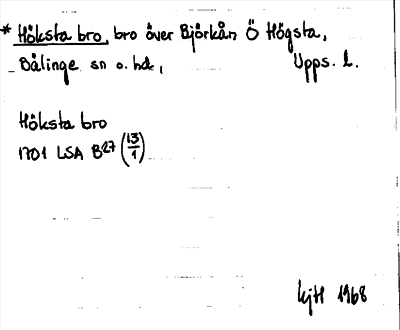 * Höksta bro, bro över Björkån Ö Högsta,
Bälinge sn o. hd, Upps. l.
Höksta bro
1701 LSA B27 (13/1)
kjtl 1968